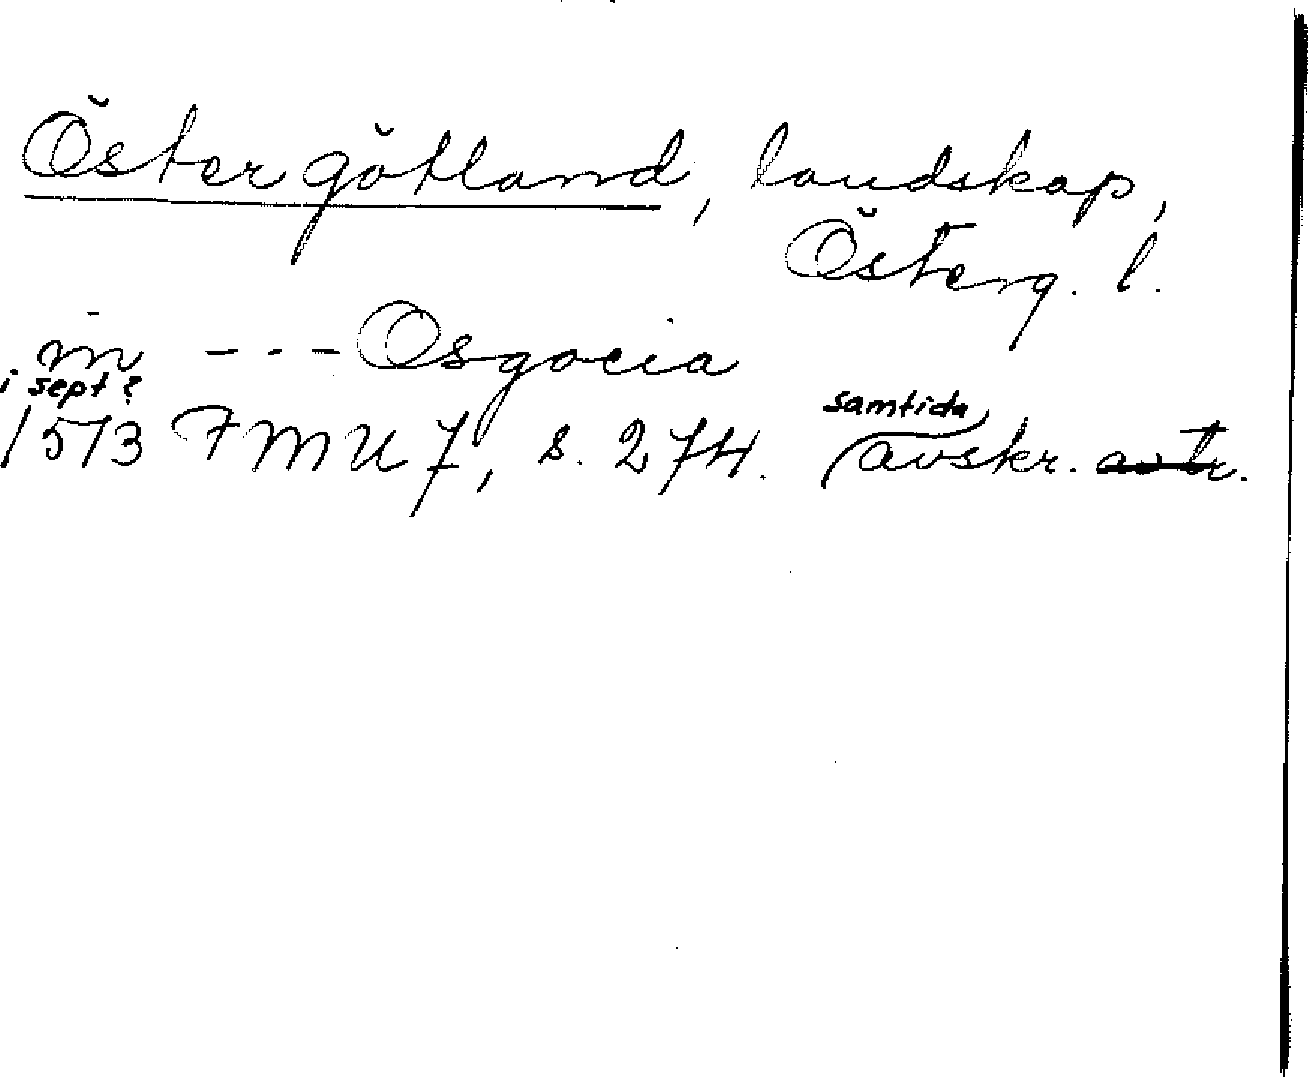 Östergötland, landskap,
Österg. l.
in --- Osgocia
i sept?
samtida
1513 FMU 7, s. 274. avskr.